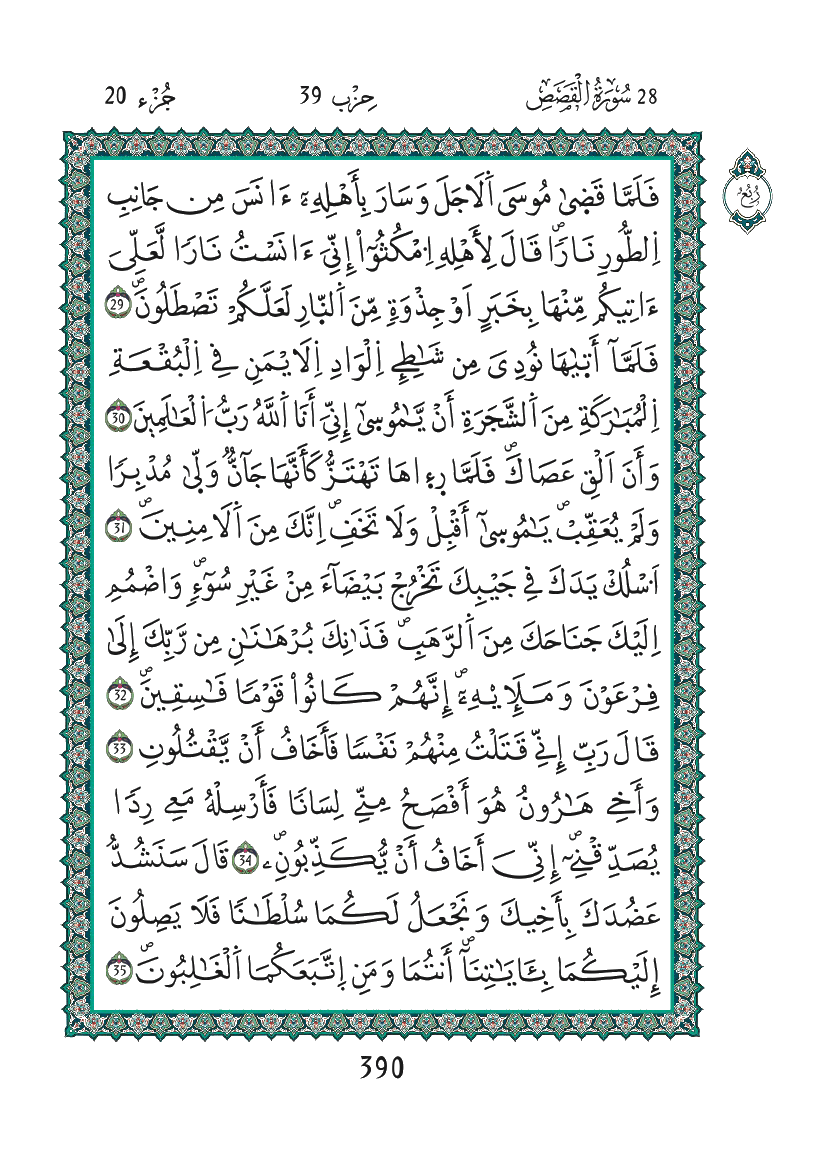 28 سُورَةُ الْقَصَصِ حِزْب 39 جُزْء 20
رُبُع
فَلَمَّا قَضۭيٰ مُوسَي اَ۬لَاجَلَ وَسَارَ بِأَهْلِهِۦٓ ءَانَسَ مِن جَانِبِ
اِ۬لطُّورِ نَارࣰاۖ قَالَ لِأَهْلِهِ اِ۟مْكُثُوٓاْ إِنِّيَ ءَانَسْتُ نَارࣰا لَّعَلِّيَ
ءَاتِيكُم مِّنْهَا بِخَبَرٍ اَوْ جِذْوَةࣲ مِّنَ اَ۬لنّ۪ارِ لَعَلَّكُمْ تَصْطَلُونَۖ 29
فَلَمَّآ أَت۪يٰهَا نُودِيَ مِن شَٰطِےِٕ اِ۬لْوَادِ اِ۬لَايْمَنِ فِے اِ۬لْبُقْعَةِ
اِ۬لْمُبَٰرَكَةِ مِنَ اَ۬لشَّجَرَةِ أَنْ يَّٰمُوس۪يٰٓ إِنِّيَ أَنَا اَ۬للَّهُ رَبُّ اُ۬لْعَٰلَمِينَ 30
وَأَنَ اَلْقِ عَصَاكَۖ فَلَمَّا ر۪ء۪اهَا تَهْتَزُّ كَأَنَّهَا جَآنࣱّ وَلّ۪يٰ مُدْبِرࣰا
وَلَمْ يُعَقِّبْۖ يَٰمُوس۪يٰٓ أَقْبِلْ وَلَا تَخَفِۖ اِنَّكَ مِنَ اَ۬لَامِنِينَۖ 31
اَ۟سْلُكْ يَدَكَ فِے جَيْبِكَ تَخْرُجْ بَيْضَآءَ مِنْ غَيْرِ سُوٓءࣲۖ وَاضْمُمِ
اِلَيْكَ جَنَاحَكَ مِنَ اَ۬لرَّهَبِۖ فَذَٰنِكَ بُرْهَٰنَٰنِ مِن رَّبِّكَ إِلَيٰ
فِرْعَوْنَ وَمَلَإِيْهِۦٓۖ إِنَّهُمْ كَانُواْ قَوْمࣰا فَٰسِقِينَۖ 32
قَالَ رَبِّ إِنِّے قَتَلْتُ مِنْهُمْ نَفْسࣰا فَأَخَافُ أَنْ يَّقْتُلُونِ 33
وَأَخِے هَٰرُونُ هُوَ أَفْصَحُ مِنِّے لِسَانࣰا فَأَرْسِلْهُ مَعِے رِدࣰا
يُصَدِّقْنِےٓۖ إِنِّيَ أَخَافُ أَنْ يُّكَذِّبُونِۦۖ 34 قَالَ سَنَشُدُّ
عَضُدَكَ بِأَخِيكَ وَنَجْعَلُ لَكُمَا سُلْطَٰنࣰا فَلَا يَصِلُونَ
إِلَيْكُمَا بِـَٔايَٰتِنَآۖ أَنتُمَا وَمَنِ اِ۪تَّبَعَكُمَا اَ۬لْغَٰلِبُونَۖ 35
390